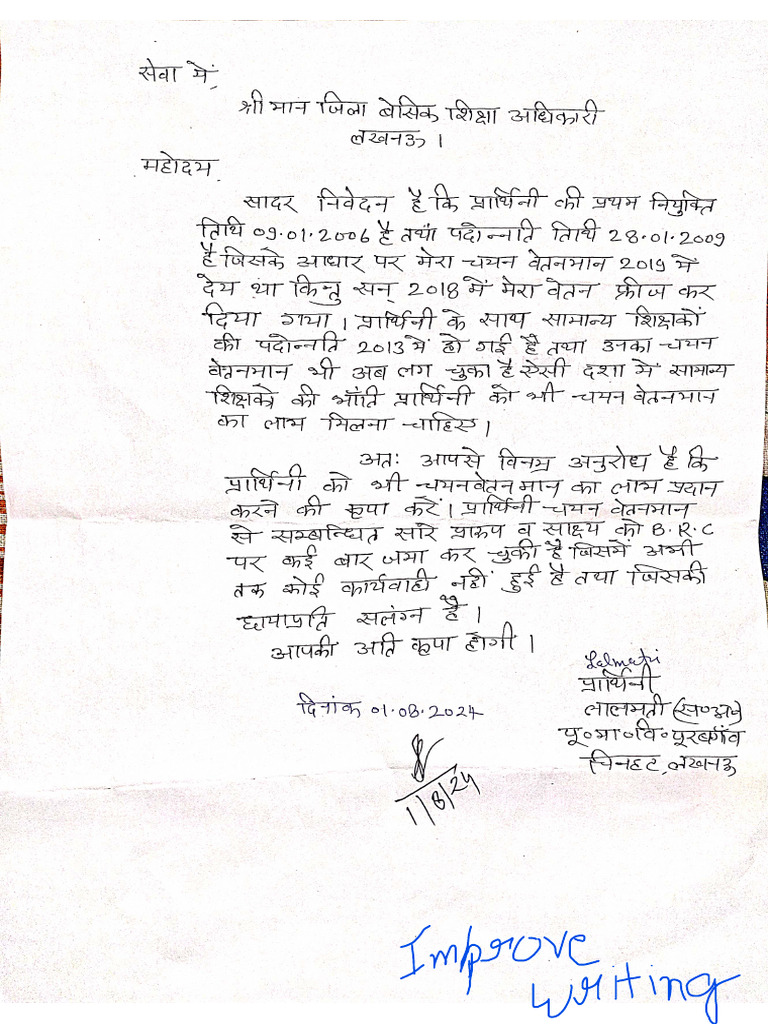 सेवा में,
श्रीमान जिला बेसिक शिक्षा अधिकारी
लखनऊ।
महोदय
सादर निवेदन है कि प्रार्थिनी की प्रथम नियुक्ति
तिथि 09.01.2006 है तथा पदोन्नति तिथि 28.01.2009
है जिसके आधार पर मेरा चयन वेतनमान 2019 में
देय था किन्तु सन् 2018 में मेरा वेतन फ्रीज कर
दिया गया। प्रार्थिनी के साथ सामान्य शिक्षकों
की पदोन्नति 2013 में हो गई है तथा उनका चयन
वेतनमान भी अब लग चुका है ऐसी दशा में सामान्य
शिक्षको की भाँति प्रार्थिनी को भी चयन वेतनमान
का लाभ मिलना चाहिए।
अतः आपसे विनम्र अनुरोध है कि
प्रार्थिनी को भी चयनवेतनमान का लाभ प्रदान
करने की कृपा करें। प्रार्थिनी चयन वेतनमान
से सम्बन्धित सारे प्रारुप व साक्ष्य को B.R.C
पर कई बार जमा कर चुकी है जिसमें अभी
तक कोई कार्यवाही नहीं हुई है तथा जिसकी
छायाप्रति सलंग्न है।
आपकी अति कृपा होगी।
Lalmati
प्रार्थिनी
लालमती (स०अ०)
पू०मा०वि०पूरबगाँव
चिनहट, लखनऊ
दिनांक 01.08.2024
1/8/24
Improve
writing